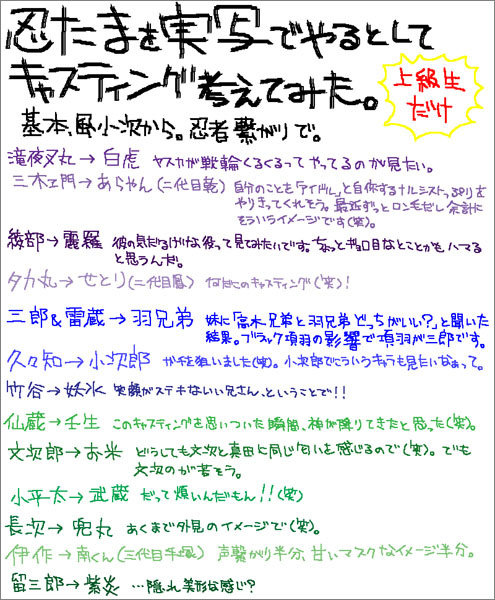 忍たまを実写でやるとして
キャスティング考えてみた。
上級生
だけ
基本、風小次から。忍者繋がりで。
滝夜叉丸→白虎 ヤスカが戦輪くるくるってやってるのが見たい。
三木ヱ門→あらやん(二代目乾) 自分のことを「アイドル」と自称するナルシストっぷりを
やりきってくれそう。最近ずっとロン毛だし余計に
そういうイメージです(笑)。
綾部→麗羅 彼の気だるげな役って見てみたいです。ちょっとギョロ目なとことかもハマる
と思うんだ。
タカ丸→せとり(二代目鳳) 何だこのキャスティング(笑)!
三郎&雷蔵→羽兄弟 妹に「高木兄弟と羽兄弟どっちがいい?」と聞いた
結果。ブラック項羽の影響で項羽が三郎です。
久々知→小次郎 かぶを狙いました(笑)。小次郎でこういうキャラも見たいなぁって。
竹谷→妖水 笑顔がステキないい兄さん、ということで!!
仙蔵→壬生 このキャスティングを思いついた瞬間、神が降りてきたと思った(笑)。
文次郎→お米 どうしても文次と真田に同じ匂いを感じるので(笑)。でも
文次のが若そう。
小平太→武蔵 だって煩いんだもん!!(笑)
長次→兜丸 あくまで外見のイメージで(笑)。
伊作→南くん(三代目手塚) 声繋がり半分、甘いマスクなイメージ半分。
留三郎→紫炎 …隠れ美形な感じ?